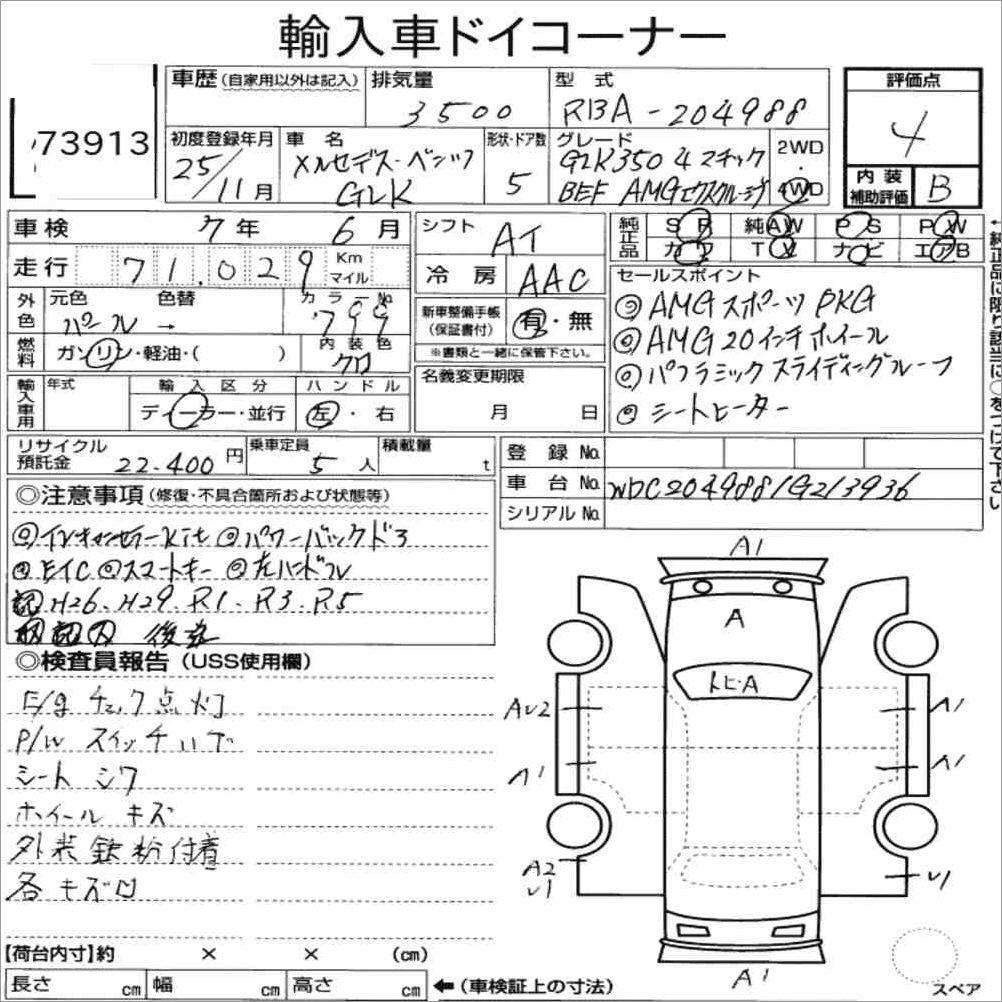 輸入車ドイコーナー
73913
車歴(自家用以外は記入)
排気量
3500
型式
RBA-204988
評価点
4
内装補助評価
B
初度登録年月
25/11月
車名
メルセデス-ベンツ
GLK
形状・ドア数
5
グレード
GLK350 4マチック
BEF AMGエクスクルーシヴ
2WD
4WD
車検
7年 6月
走行
71,029 Km マイル
シフト
AT
冷房
AAC
純正品
SR 純AW PS PW
カワ TV ナビ エアB
外色
元色 色替 カラーNo.
パール → 799
燃料
ガソリン・軽油・( )
内装色
クロ
新車整備手帳(保証書付)
有・無
※書類と一緒に保管下さい。
名義変更期限
月 日
輸入車用
年式
輸入区分
ディーラー・並行
ハンドル
左・右
セールスポイント
◎AMGスポーツPKG
◎AMG20インチホイール
◎パノラミックスライディングルーフ
◎シートヒーター
←純正品に限り該当に○をつけて下さい
リサイクル預託金
22.400円
乗車定員
5人
積載量
t
登録No.
車台No.
WDC2049881G213936
シリアルNo.
◎注意事項(修復・不具合箇所および状態等)
◎TVキャンセラーKit ◎パワーバックドア
◎ETC ◎スマートキー ◎左ハンドル
記 H26.H29.R1.R3.R5
後送
◎検査員報告(USS使用欄)
E/gチェック点灯
P/Wスイッチハゲ
シートシワ
ホイールキズ
外装鉄粉付着
各キズ凹
A1
A
トヒ-A
AU2
A1
A1
A1
A2
U1
U1
A1
【荷台内寸】約 × × (cm)
長さ cm 幅 cm 高さ cm ←(車検証上の寸法)
スペア